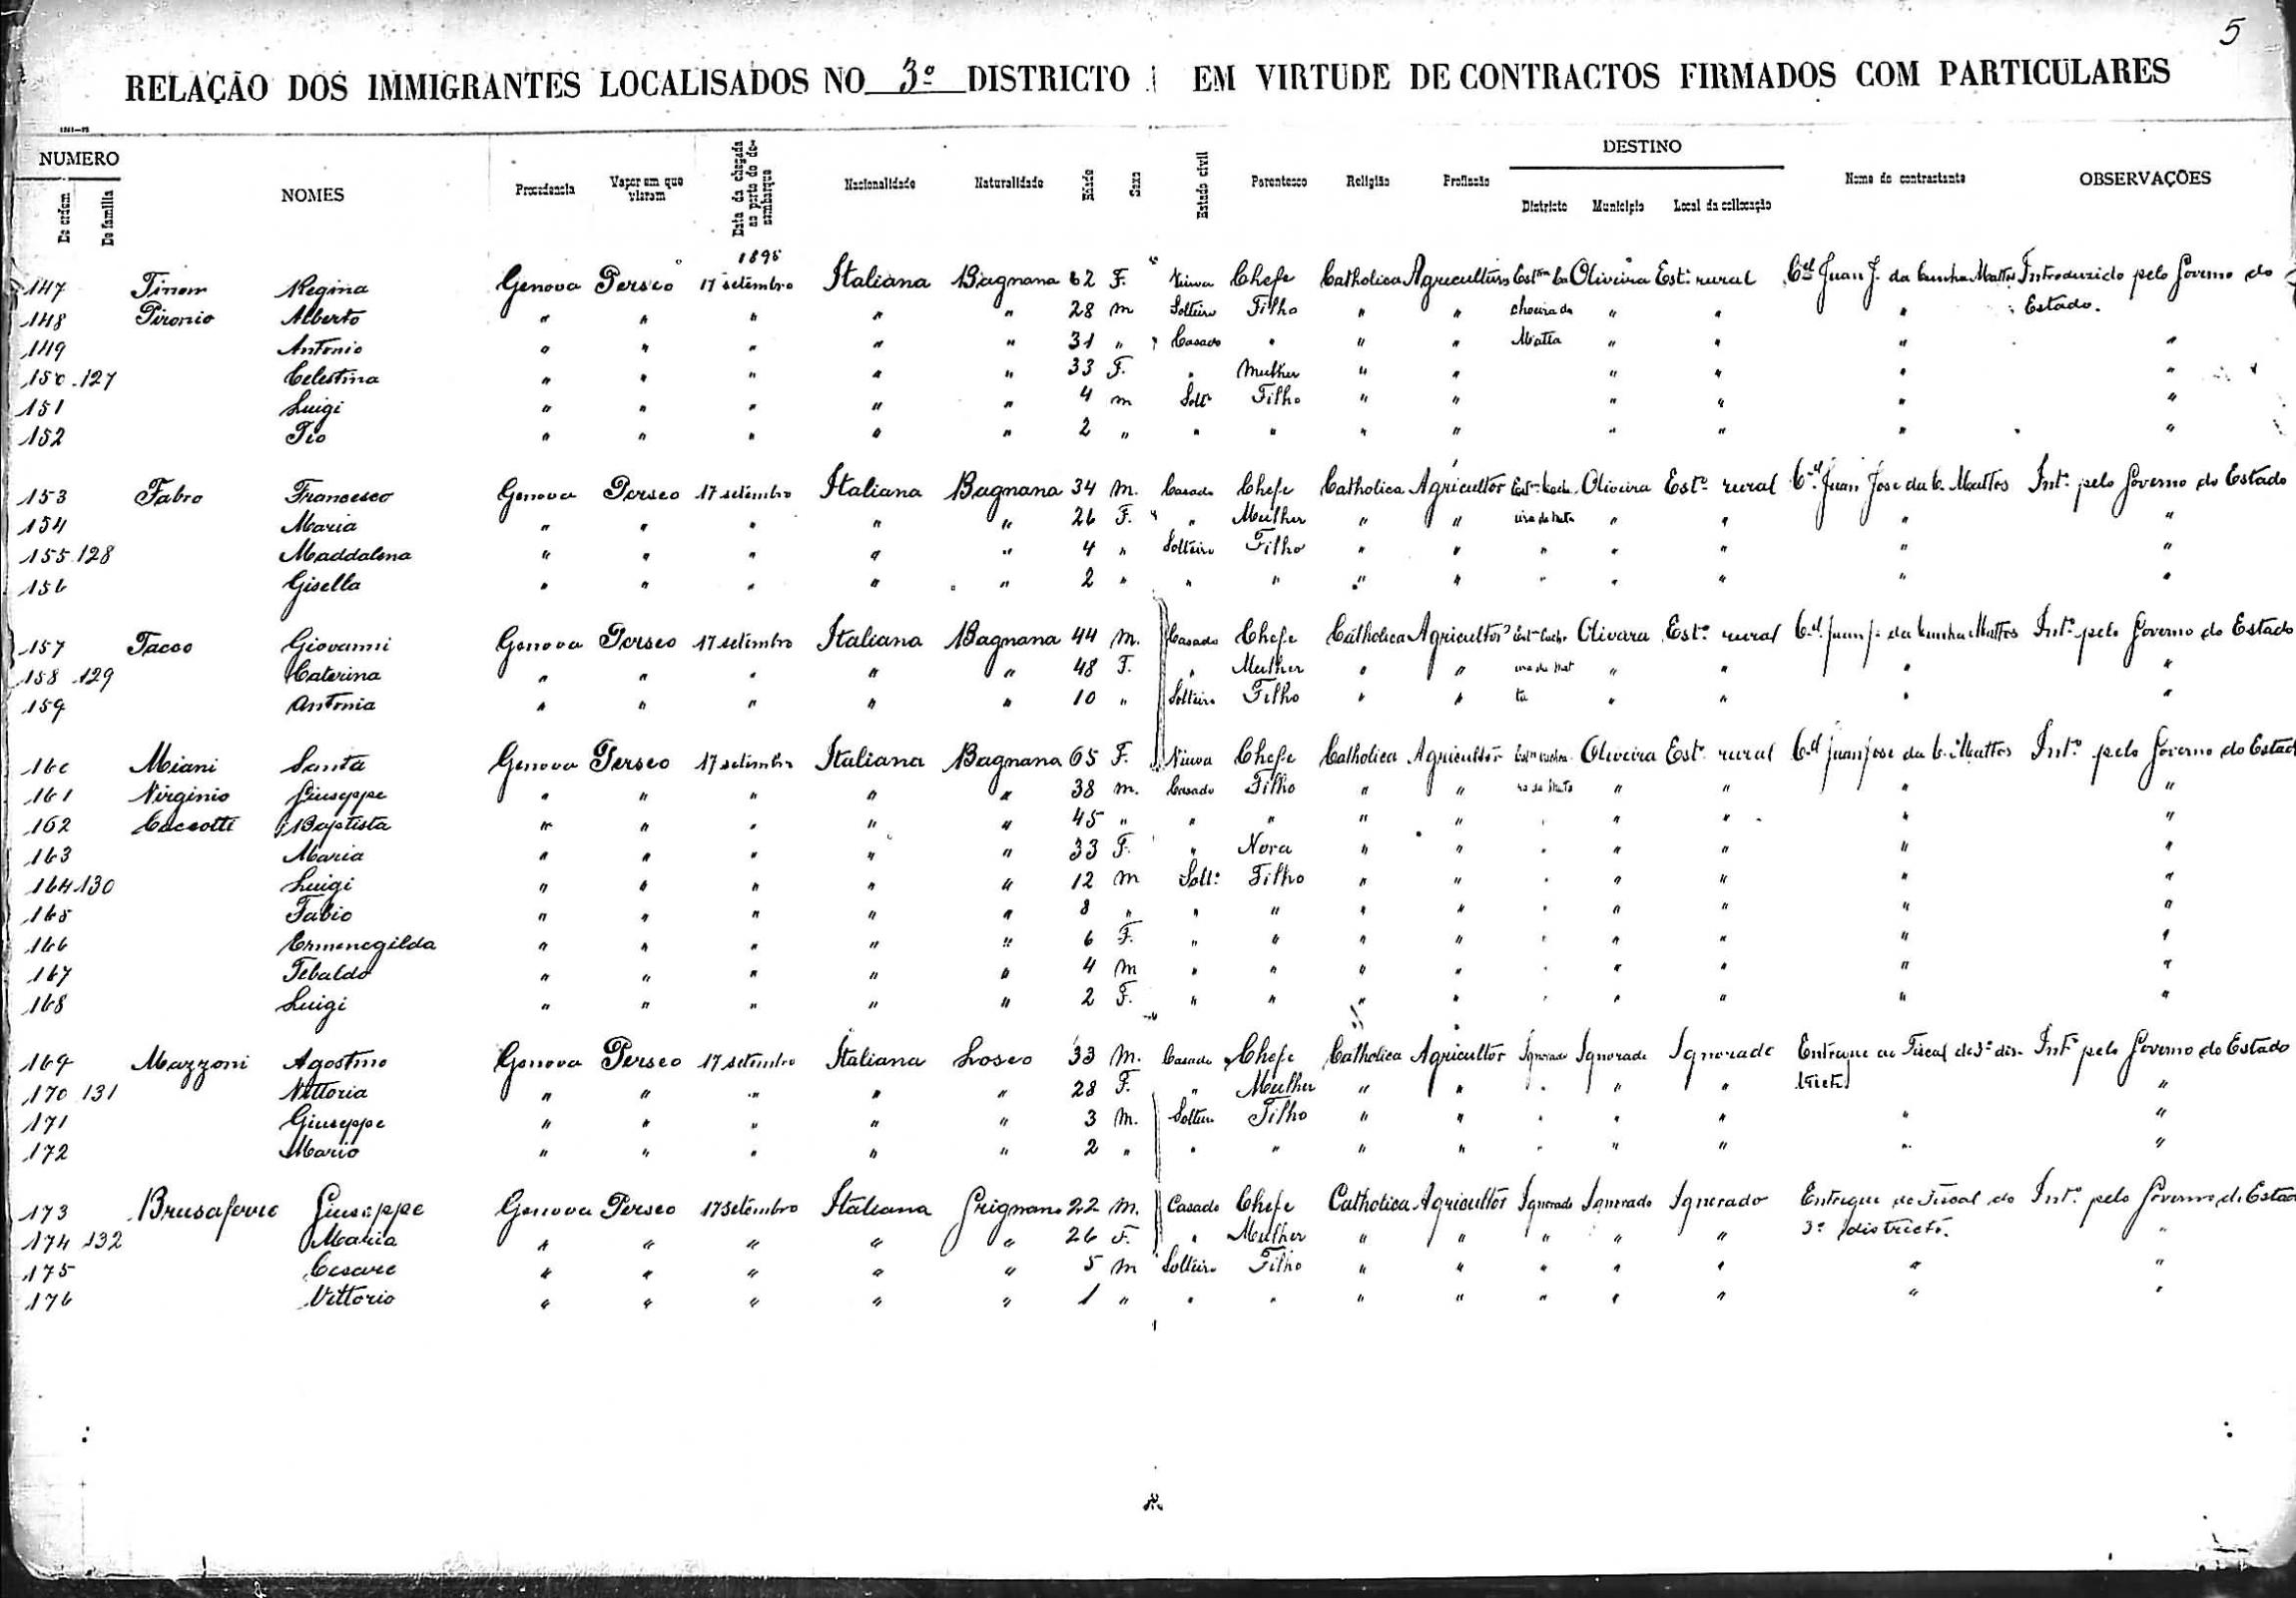 5
RELAÇÃO DOS IMMIGRANTES LOCALISADOS NO 3º DISTRICTO EM VIRTUDE DE CONTRACTOS FIRMADOS COM PARTICULARES
NUMERO De ordem De familia NOMES Procedencia Vapor em que vieram Data da chegada ao porto do desembarque Nacionalidade Naturalidade Edade Sexo Estado civil Parentesco Religião Profissão DESTINO Districto Municipio Local da collocação Nome do contractante OBSERVAÇÕES
1895
147 Regina Genova Perseo 17 setembro Italiana Bagnana 62 F. Viuva Chefe Catholica Oliveira Est. rural Cel Juan J. da Cunha Mattos Introduzido pelo Governo do
148 Pironio Alberto " " " " " 28 m Solteiro Filho " " choeira da " " " Estado.
149 Antonio " " " " " 31 " Casado " " " Matta " " " "
150 127 Celestina " " " " " 33 F. " Mulher " " " " " "
151 Luigi " " " " " 4 m Solt. Filho " " " " " "
152 Pio " " " " " 2 " " " " " " " " "
153 Fabro Francesco Genova Perseo 17 setembro Italiana Bagnana 34 m. Casado Chefe Catholica Agricultor Oliveira Est. rural Cel Juan Jose da C. Mattos Int. pelo Governo do Estado
154 Maria " " " " " 26 F. " Mulher " " " " " "
155 128 Maddalena " " " " " 4 " Solteiro Filho " " " " " " "
156 Gisella " " " " " 2 " " " " " " " " " "
157 Tacco Giovanni Genova Perseo 17 setembro Italiana Bagnana 44 m. Casado Chefe Catholica Agricultor Oliveira Est. rural Cel. Juan J. da Cunha Mattos Int. pelo Governo do Estado
158 129 Caterina " " " " " 48 F. " Mulher " " " " " "
159 Antonia " " " " " 10 " Solteiro Filho " " ta " " " "
160 Miani Santa Genova Perseo 17 setembro Italiana Bagnana 65 F. Viuva Chefe Catholica Agricultor Oliveira Est. rural Cel Juan Jose da C. Mattos Int. pelo Governo do Estad
161 Virginio Giuseppe " " " " " 38 m. Casado Filho " " " " " "
162 Baptista " " " " " 45 " " " " " " " " " "
163 Maria " " " " " 33 F. " Nora " " " " " " "
164 130 Luigi " " " " " 12 m Solt. Filho " " " " " " "
165 Fabio " " " " " 8 " " " " " " " " " "
166 Ermenegilda " " " " " 6 F. " " " " " " " " "
167 Tebaldo " " " " " 4 m " " " " " " " " "
168 Luigi " " " " " 2 F. " " " " " " " " "
169 Mazzoni Agostino Genova Perseo 17 setembro Italiana Losco 33 m. Casado Chefe Catholica Agricultor Ignorado Ignorado Ignorado Entregue ao Fiscal do 3º dis- Int. pelo Governo do Estado
170 131 Vittoria " " " " " 28 F. " Mulher " " " " " tricto "
171 Giuseppe " " " " " 3 m. Solteiro Filho " " " " " " "
172 Mario " " " " " 2 " " " " " " " " " "
173 Giuseppe Genova Perseo 17 setembro Italiana Grignano 22 m. Casado Chefe Catholica Agricultor Ignorado Ignorado Ignorado Entregue ao Fiscal do Int. pelo Governo do Estad
174 132 Maria " " " " " 26 F. " Mulher " " " " " 3º districto. "
175 Cesare " " " " " 5 m Solteiro Filho " " " " " " "
176 Vittorio " " " " " 1 " " " " " " " " " "